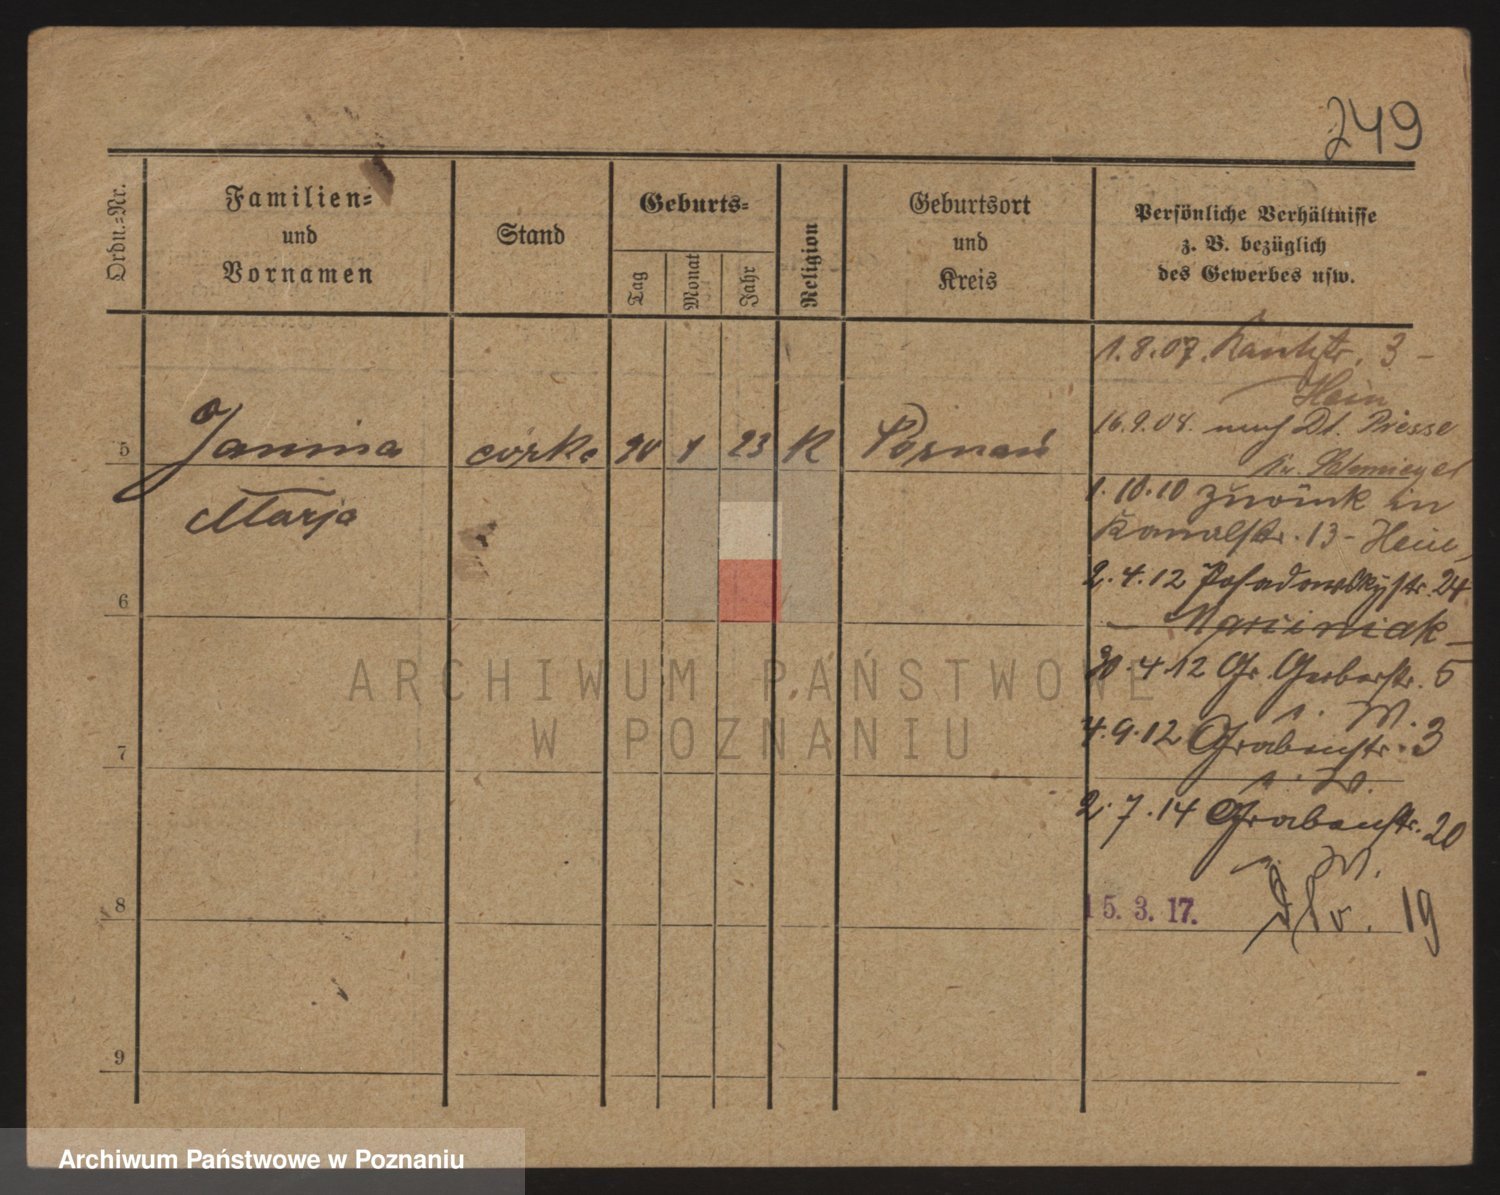 249
Ordn.-Nr.
Familien-
und
Vornamen
Stand
Geburts-
Tag
Monat
Jahr
Religion
Geburtsort
und
Kreis
Persönliche Verhältnisse
z. B. bezüglich
des Gewerbes usw.
1.8.07. Kantstr. 3 -
Hein
16.9.08. nach Dt. Presse
Kr. Schmiegel
5 Janina córka 1 23 K Poznań
Marja
1.10.10 zurück in
Kanalstr. 13 - Hein
2.4.12 Posadowskystr. 24
6
- Marciniak -
30.4.12 Gr. Gerberstr. 5
b. W.
4.9.12 Grabenstr. 3
7
b. W.
2.7.14 Grabenstr. 20
W.
8 15. 3. 17. 19
9
ARCHIWUM PAŃSTWOWE
W POZNANIU
Archiwum Państwowe w Poznaniu